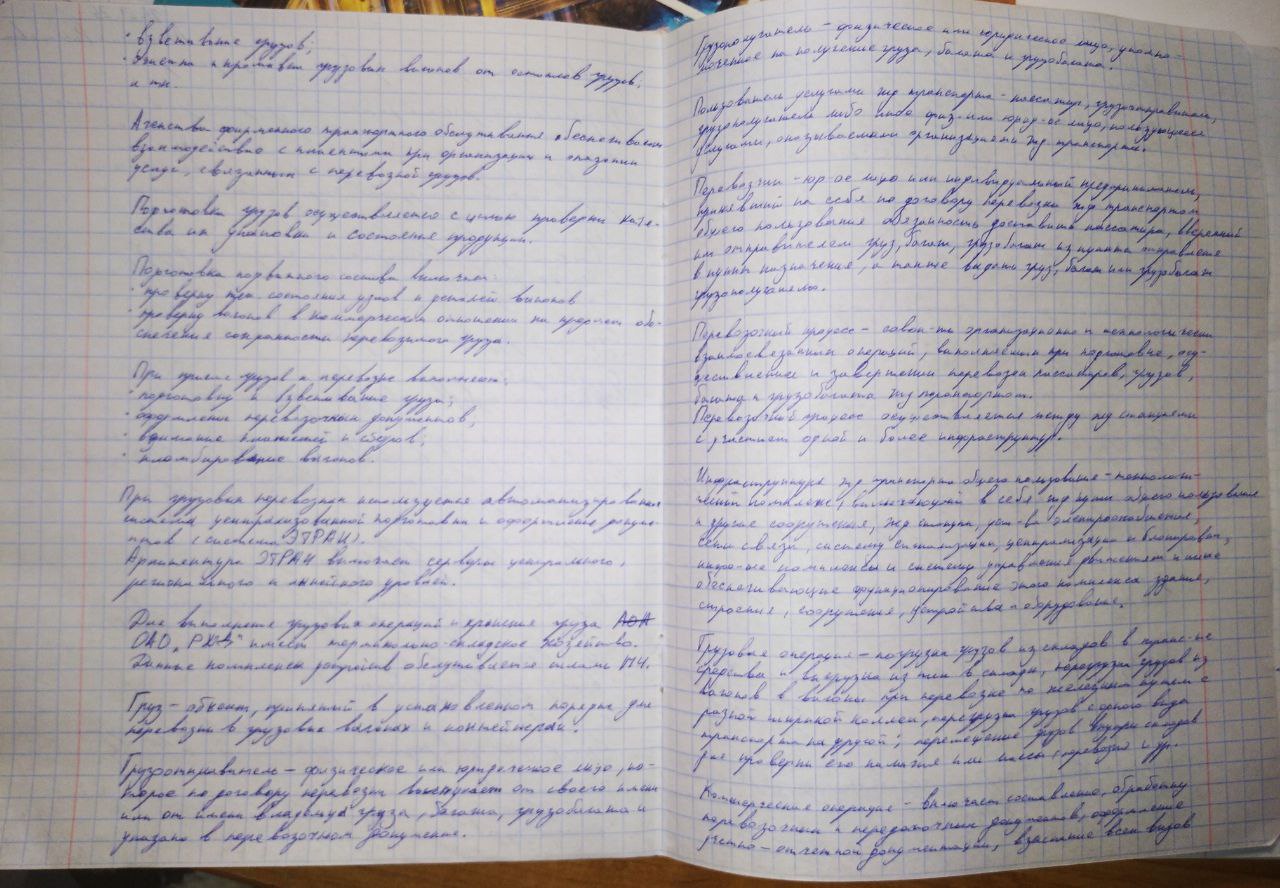 · взвешивание грузов;
· очистка и промывка грузовых вагонов от остатков грузов;
и тп.
Агенства фирменного транспортного обслуживания обеспечивают
взаимодействие с клиентами при организации и оказании
услуг, связанных с перевозкой грузов.
Подготовка грузов осуществляется с целью проверки каче-
ства их упаковки и состояния продукции.
Подготовка подвижного состава включает:
· проверку тех. состояния узлов и деталей вагонов
· проверку вагонов в коммерческом отношении на предмет обе-
спечения сохранности перевозимого груза.
При приеме грузов к перевозке выполняют:
· подготовку и взвешивание груза;
· оформление перевозочных документов;
· взимание платежей и сборов;
· пломбирование вагонов.
При грузовых перевозках используется автоматизированная
система централизованной подготовки и оформления докуме-
нтов (система ЭТРАН).
Архитектура ЭТРАН включает серверы центрального,
регионального и линейного уровней.
Для выполнения грузовых операций и хранения груза
ОАО „РЖД" имеет терминально-складское хозяйство.
Данные комплексы устройств обслуживается силами МЧ.
Груз - объект, принятый в установленном порядке для
перевозки в грузовых вагонах и контейнерах.
Грузоотправитель - физическое или юридическое лицо, ко-
торое по договору перевозки выступает от своего имени
или от имени владельца груза, багажа, грузобагажа и
указано в перевозочном документе.
Грузополучатель - физическое или юридическое лицо, уполно-
моченное на получение груза, багажа и грузобагажа.
Пользователь услугами жд транспорта - пассажир, грузоотправитель,
грузополучатель либо иное физ- или юрид-ое лицо, пользующееся
услугами, оказываемыми организациями жд транспорта.
Перевозчик - юр-ое лицо или индивидуальный предприниматель,
принявший на себя по договору перевозки жд транспортом
общего пользования обязанность доставить пассажира, вверенный
им отправителем груз, багаж, грузобагаж из пункта отправления
в пункт назначения, а также выдать груз, багаж или грузобагаж
грузополучателю.
Перевозочный процесс - совок-ть организационно и технологически
взаимосвязанных операций, выполняемых при подготовке, осу-
ществлении и завершении перевозок пассажиров, грузов,
багажа и грузобагажа жд транспортом.
Перевозочный процесс осуществляется между жд станциями
с участием одной и более инфраструктур.
Инфраструктура жд транспорта общего пользования - технологи-
ческий комплекс, включающий в себя жд пути общего пользования
и другие сооружения, жд станции, уст-ва электроснабжения,
сети связи, систему сигнализации, централизации и блокировки,
инфо-ые комплексы и систему управления движением и иные
обеспечивающие функционирование этого комплекса здания,
строения, сооружения, устройства и оборудование.
Грузовая операция - погрузка грузов из складов в трансп-ые
средства и выгрузка из них в склады, перегрузка грузов из
вагонов в вагоны при перевозке по железным путям с
разной шириной колеи, перегрузка грузов с одного вида
транспорта на другой; перемещение грузов внутри складов
для проверки его наличия или массы, перевозки и др.
Коммерческие операции - включает составление, обработку
перевозочных и передаточных документов, оформление
учетно-отчетной документации, взыскание всех видов